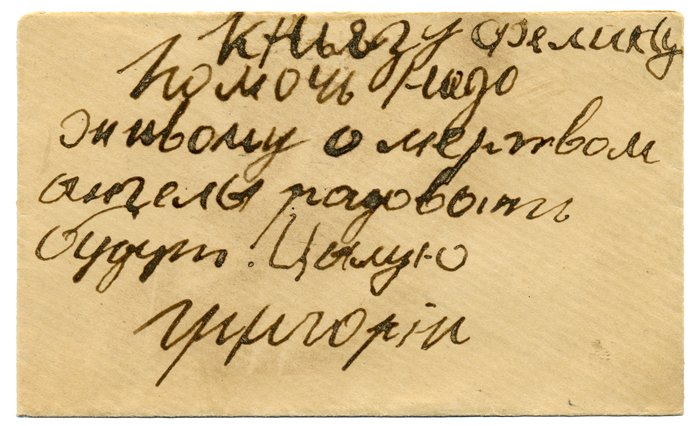 Князу Феликсу
Помочь надо
живому о мертвом
ангелы радовать
будут. Цылую
Григоріи